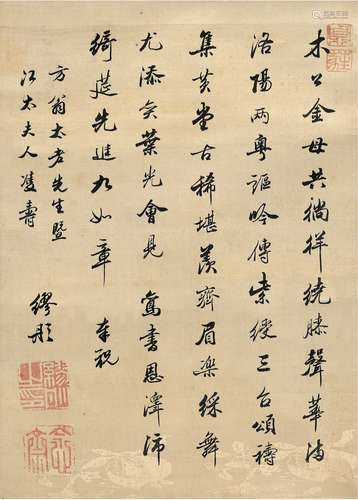 木公金母共徜徉繞膝聲華滿
洛陽兩粵謳吟傳紫綬三台頌禱
集黃堂古稀堪羨齊眉樂綵舞
尤添奕葉光會見書恩澤沛
綺筵先進九如章 奉祝
方翁太老先生暨
江太夫人雙壽
繆彤